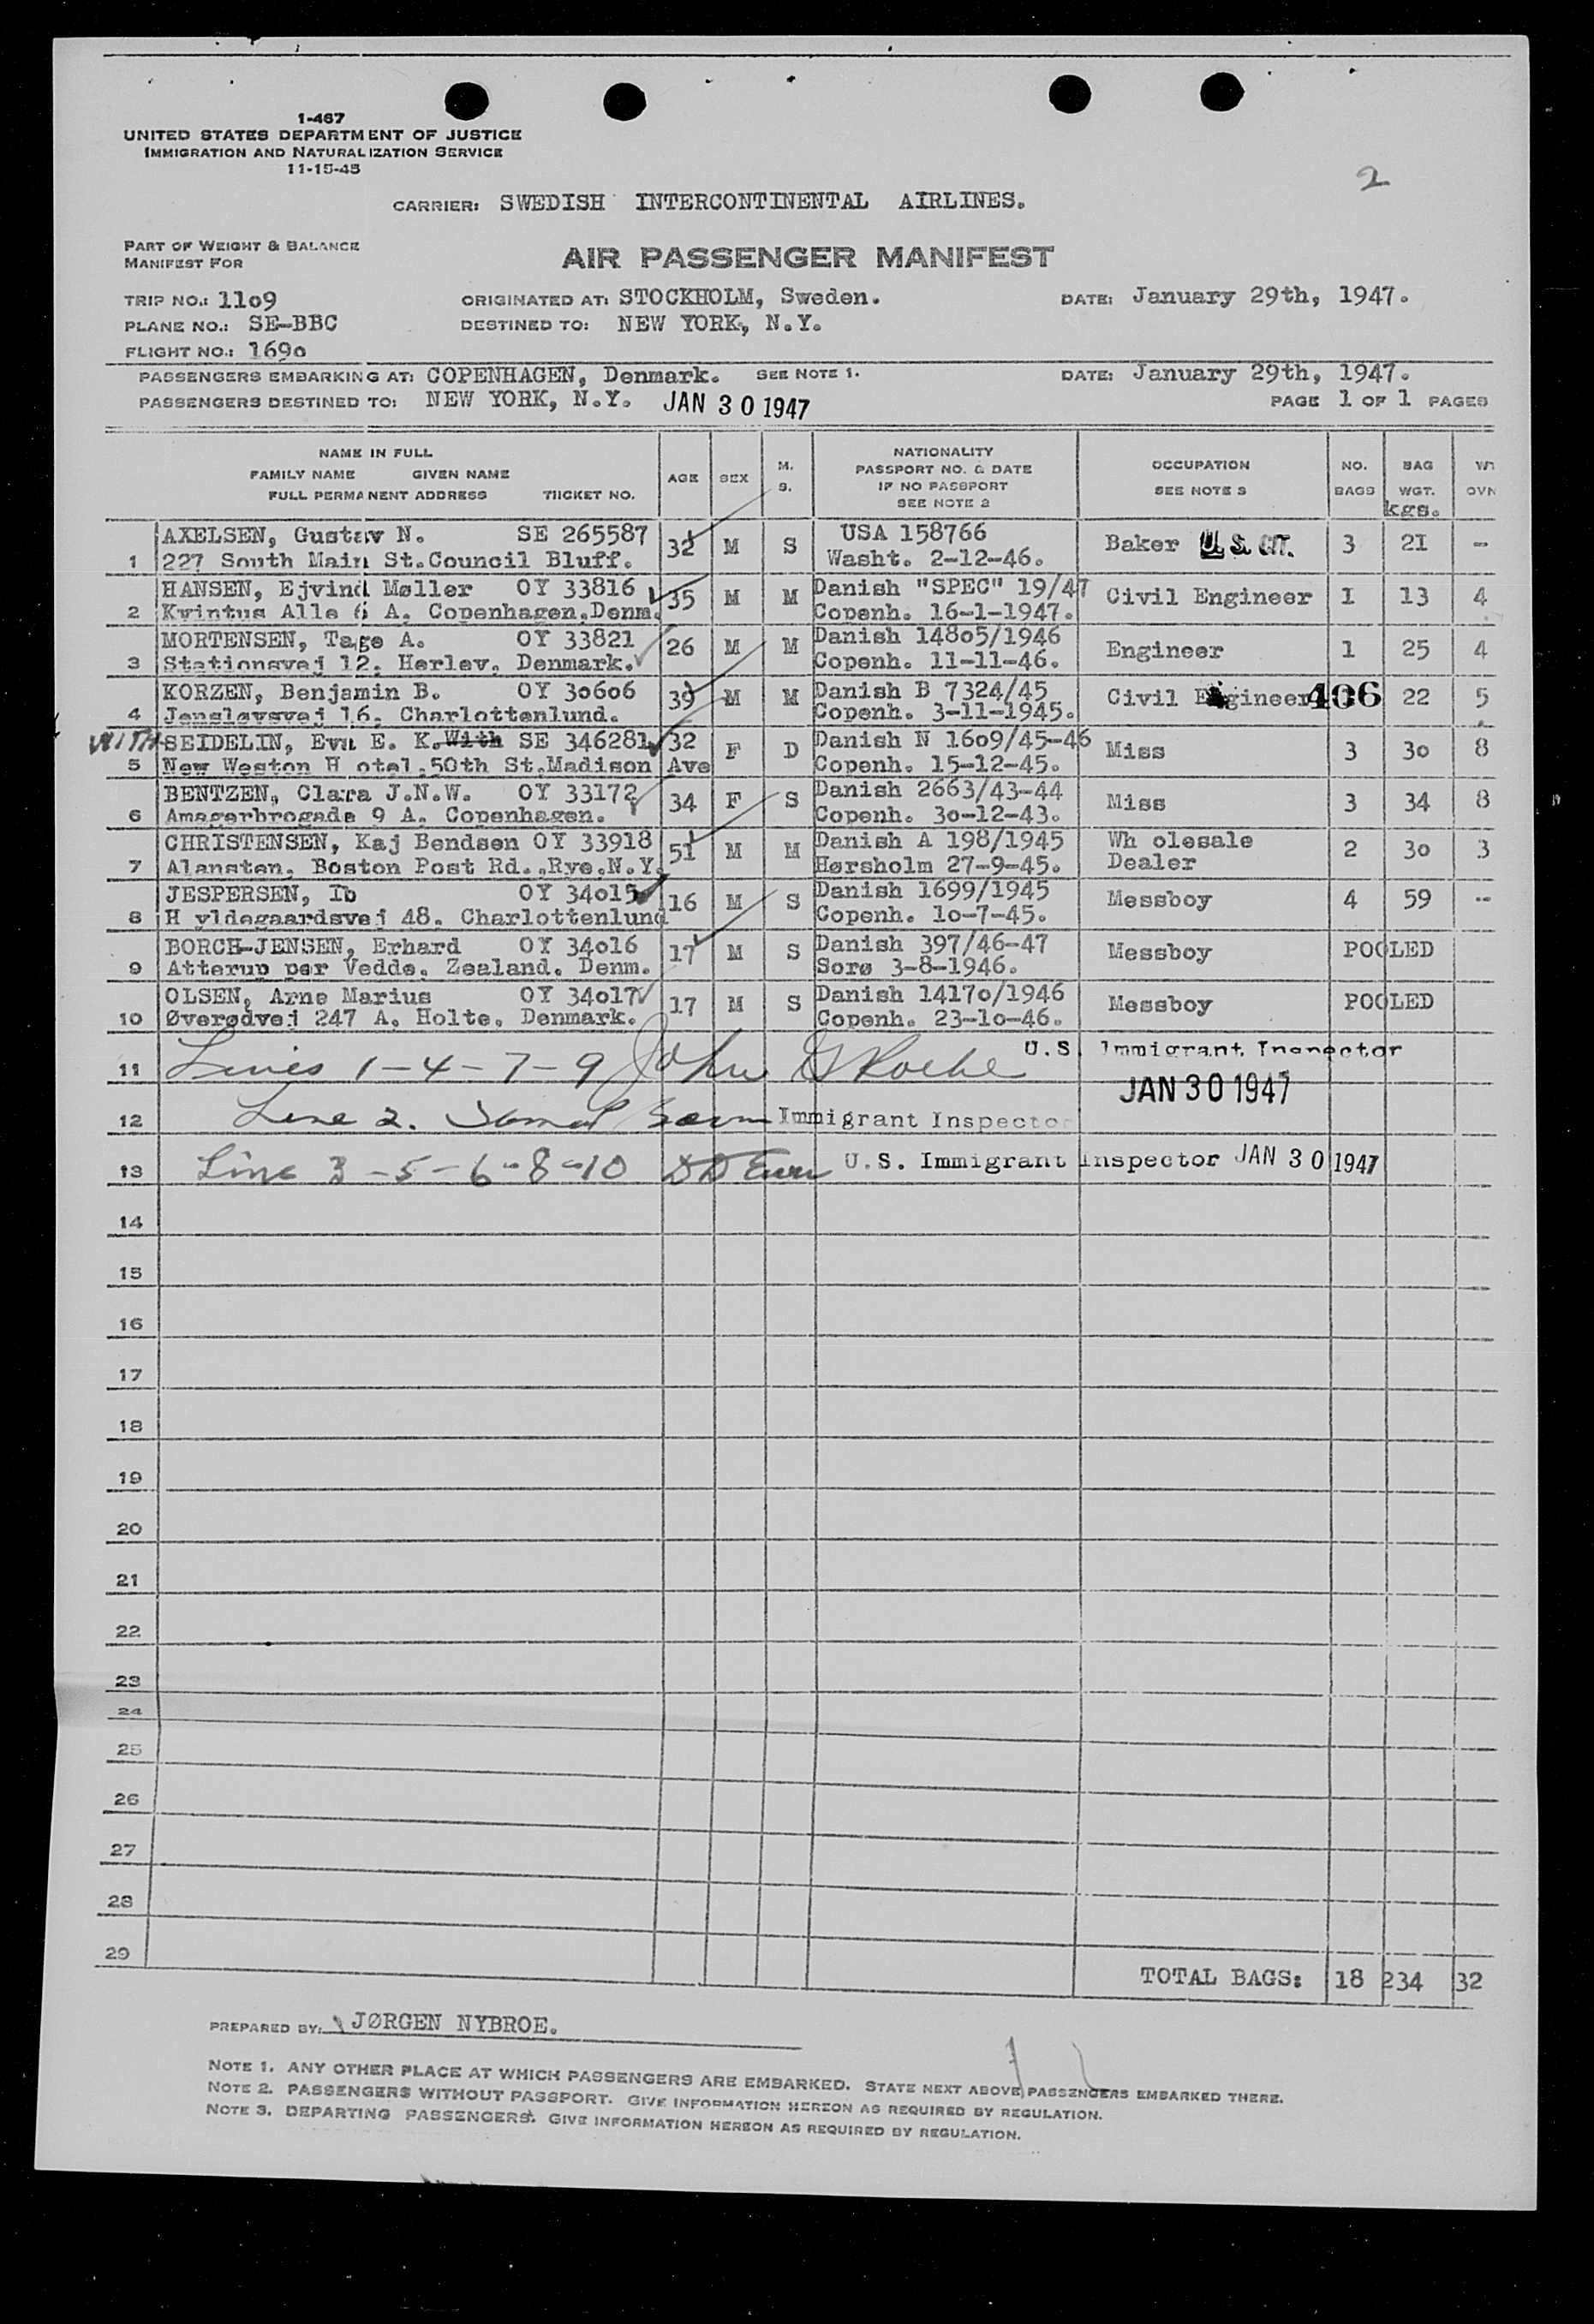 2
1-467
UNITED STATES DEPARTMENT OF JUSTICE
IMMIGRATION AND NATURALIZATION SERVICE
11-15-45
CARRIER: SWEDISH INTERCONTINENTAL AIRLINES.
PART OF WEIGHT & BALANCE
MANIFEST FOR
AIR PASSENGER MANIFEST
TRIP NO.: 11o9 ORIGINATED AT: STOCKHOLM, Sweden. DATE: January 29th, 1947.
PLANE NO.: SE-BBC DESTINED TO: NEW YORK, N.Y.
FLIGHT NO.: 169o
PASSENGERS EMBARKING AT: COPENHAGEN, Denmark. SEE NOTE 1. DATE: January 29th, 1947.
PASSENGERS DESTINED TO: NEW YORK, N.Y. JAN 30 1947 PAGE 1 OF 1 PAGES
NAME IN FULL
FAMILY NAME GIVEN NAME
FULL PERMANENT ADDRESS TICKET NO.
AGE SEX M. S.
NATIONALITY
PASSPORT NO. & DATE
IF NO PASSPORT
SEE NOTE 2
OCCUPATION
SEE NOTE 3
NO. BAGS
BAG WGT.
kgs.
AXELSEN, Gustav N. SE 265587 32 M S USA 158766 Baker U.S. CIT. 3 2I -
1 227 South Main St.Council Bluff. Washt. 2-12-46.
HANSEN, Ejvind Møller OY 33816 35 M M Danish "SPEC" 19/47 Civil Engineer I 13 4
2 Kvintus Alle 6 A. Copenhagen.Denm. Copenh. 16-1-1947.
MORTENSEN, Tage A. OY 33821 26 M M Danish 148o5/1946 Engineer 1 25 4
3 Stationsvej 12. Herlev. Denmark. Copenh. 11-11-46.
KORZEN, Benjamin B. OY 3o6o6 39 M M Danish B 7324/45 Civil Engineer 406 22 5
4 Jensløvsvej 16. Charlottenlund. Copenh. 3-11-1945.
WITH SEIDELIN, Eva E. K.With SE 346281 32 F D Danish N 16o9/45-46 Miss 3 3o 8
5 New Weston H otel.50th St.Madison Ave Copenh. 15-12-45.
BENTZEN, Clara J.N.W. OY 33172 34 F S Danish 2663/43-44 Miss 3 34 8
6 Amagerbrogade 9 A. Copenhagen. Copenh. 3o-12-43.
CHRISTENSEN, Kaj Bendsen OY 33918 51 M M Danish A 198/1945 Wh olesale 2 3o 3
7 Alansten. Boston Post Rd..Rye.N.Y. Hørsholm 27-9-45. Dealer
JESPERSEN, Ib OY 34o15 16 M S Danish 1699/1945 Messboy 4 59 --
8 H yldegaardsvej 48. Charlottenlund Copenh. 1o-7-45.
BORCH-JENSEN, Erhard OY 34o16 17 M S Danish 397/46-47 Messboy POOLED
9 Atterup per Vedde. Zealand. Denm. Sorø 3-8-1946.
OLSEN, Arne Marius OY 34o17 17 M S Danish 1417o/1946 Messboy POOLED
10 Øverødvej 247 A. Holte. Denmark. Copenh. 23-1o-46.
11 Lines 1-4-7-9 John G Roche U.S. Immigrant Inspector
JAN 30 1947
12 Line 2. Immigrant Inspector
13 Line 3-5-6-8-10 U.S. Immigrant Inspector JAN 30 1947
14
15
16
17
18
19
20
21
22
23
24
25
26
27
28
29
TOTAL BAGS: 18 234 32
PREPARED BY: JØRGEN NYBROE.
NOTE 1. ANY OTHER PLACE AT WHICH PASSENGERS ARE EMBARKED. STATE NEXT ABOVE PASSENGERS EMBARKED THERE.
NOTE 2. PASSENGERS WITHOUT PASSPORT. GIVE INFORMATION HEREON AS REQUIRED BY REGULATION.
NOTE 3. DEPARTING PASSENGERS. GIVE INFORMATION HEREON AS REQUIRED BY REGULATION.